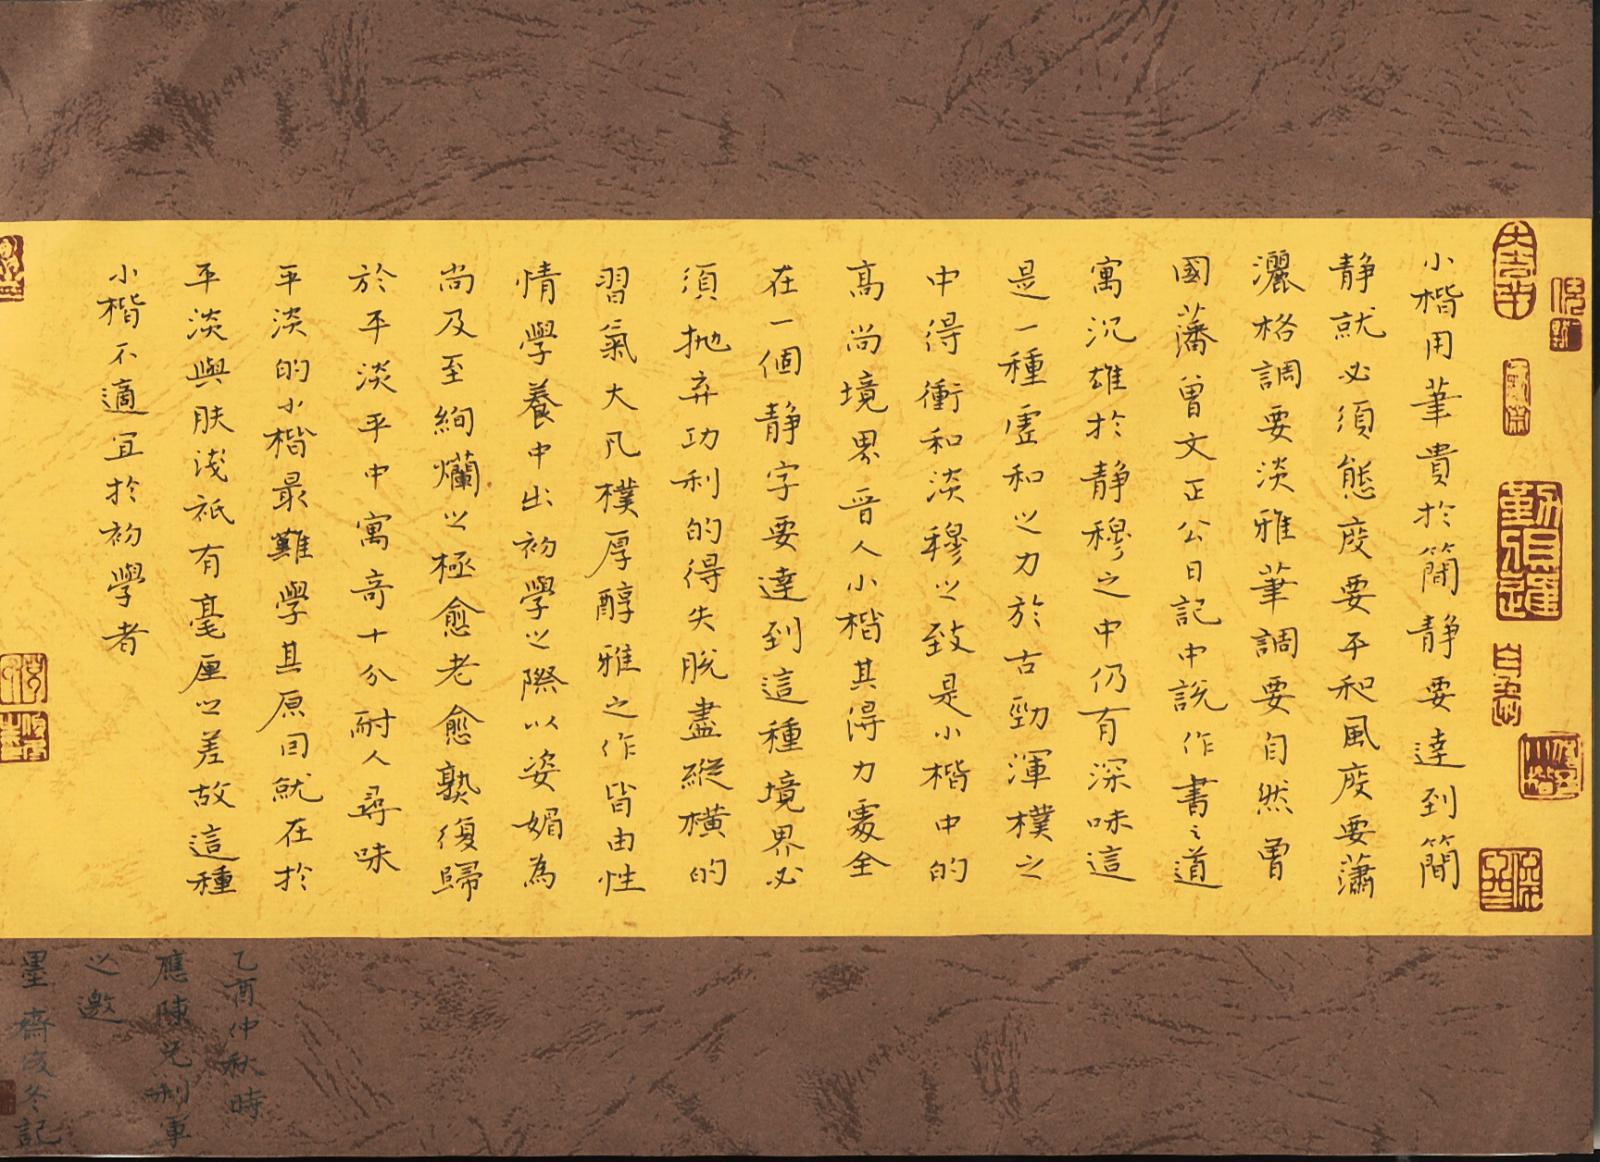 小楷用筆貴於簡靜要達到簡
靜就必須態度要平和風度要蕭
灑格調要淡雅筆調要自然曾
國藩曾文正公日記中説作書之道
寓沉雄於靜穆之中仍有深味這
是一種虛和之力於古勁渾樸之
中得衝和淡穆之致是小楷中的
高尚境界晉人小楷其得力處全
在一個靜字要達到這種境界必
須抛弃功利的得失脫盡縱橫的
習氣大凡樸厚醇雅之作皆由性
情學養中出初學之際以姿媚為
尚及至絢爛之極愈老愈熟復歸
於平淡平中寓奇十分耐人尋味
平淡的小楷最難學其原因就在於
平淡與膚淺祇有毫厘之差故這種
小楷不適宜於初學者
乙酉仲秋時
應陳兄利軍
之邀
墨齋成冬記